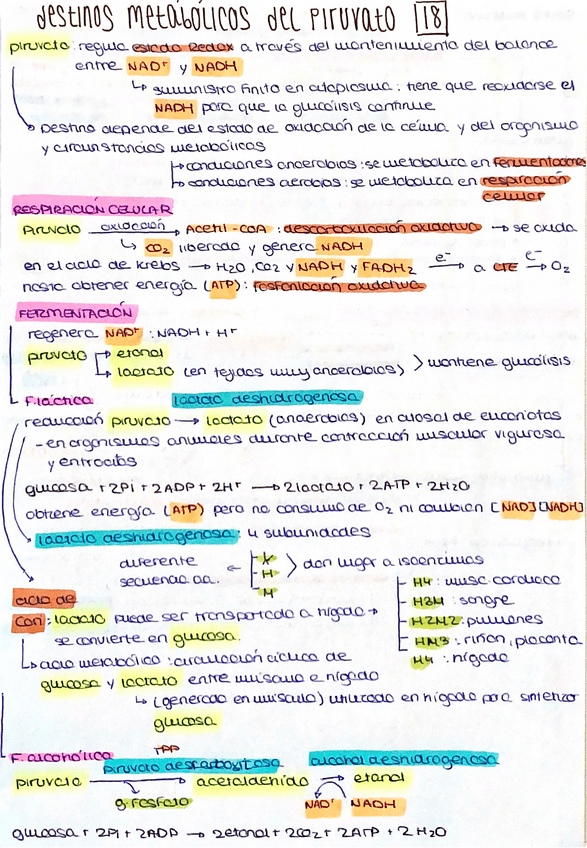 destinos metabólicos del piruvato 18
piruvato: regula estado Redox a través del mantenimiento del balance
entre NAD+ y NADH
↳ suministro finito en citoplasma: tiene que reoxidarse el
NADH para que la glucólisis continue
Destino depende del estado de oxidación de la célula y del organismo
y circunstancias metabólicas
→ condiciones anaerobias: se metaboliza en fermentaciones
→ condiciones aerobias: se metaboliza en respiración
celular
RESPIRACIÓN CELULAR
Piruvato oxidación → Acetil-CoA: descarboxilación oxidativa → se oxida
↳ CO2 liberado y genera NADH
en el ciclo de krebs → H2O, CO2 y NADH y FADH2 e- → a CTE e- → O2
hasta obtener energía (ATP): fosforilación oxidativa
FERMENTACIÓN
regenera NAD+: NADH + H+
piruvato → etanol
→ lactato (en tejidos muy anaerobios) > mantiene glucólisis
F. láctica lactato deshidrogenasa
reducción piruvato → lactato (anaerobios) en citosol de eucariotas
- en organismos animales durante contracción muscular vigurosa
y eritrocitos
glucosa + 2Pi + 2ADP + 2H+ → 2 lactato + 2ATP + 2H2O
obtiene energía (ATP) pero no consumo de O2 ni cambian [NAD][NADH]
lactato deshidrogenasa: 4 subunidades
diferente
secuencia aa. ← K
H
M
> dan lugar a isoenzimas
H4: musc. cardiaco
H3M: sangre
H2M2: pulmones
HM3: riñón, placenta
M4: hígado
ciclo de
Cori: lactato puede ser transportado a hígado →
se convierte en glucosa.
↳ ciclo metabólico: circulación cíclica de
glucosa y lactato entre músculo e hígado
↳ (generado en músculo) utilizado en hígado para sintetizar
glucosa
F. alcohólica TPP
piruvato desfarboxilasa alcohol deshidrogenasa
piruvato → acetaldehído → etanol
g. fosfato NAD+ NADH
glucosa + 2Pi + 2ADP → 2etanol + 2CO2 + 2ATP + 2H2O